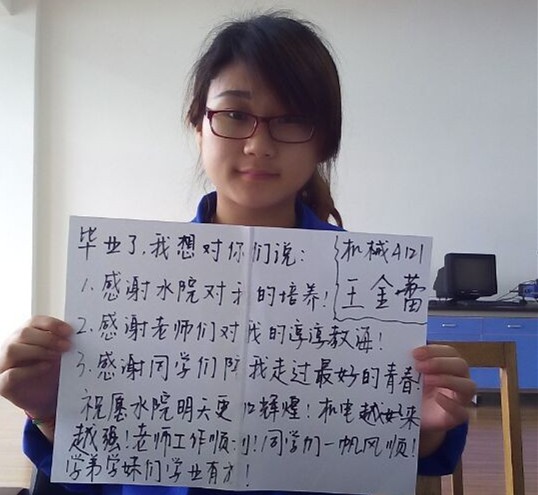 毕业了,我想对你们说:
机械4121
王金蕾
1.感谢水院对我的培养!
2.感谢老师们对我的谆谆教诲!
3.感谢同学们陪我走过最好的青春!
祝愿水院明天更加辉煌!机电越好来
越强!老师工作顺利!同学们一帆风顺!
学弟学妹们学业有才!